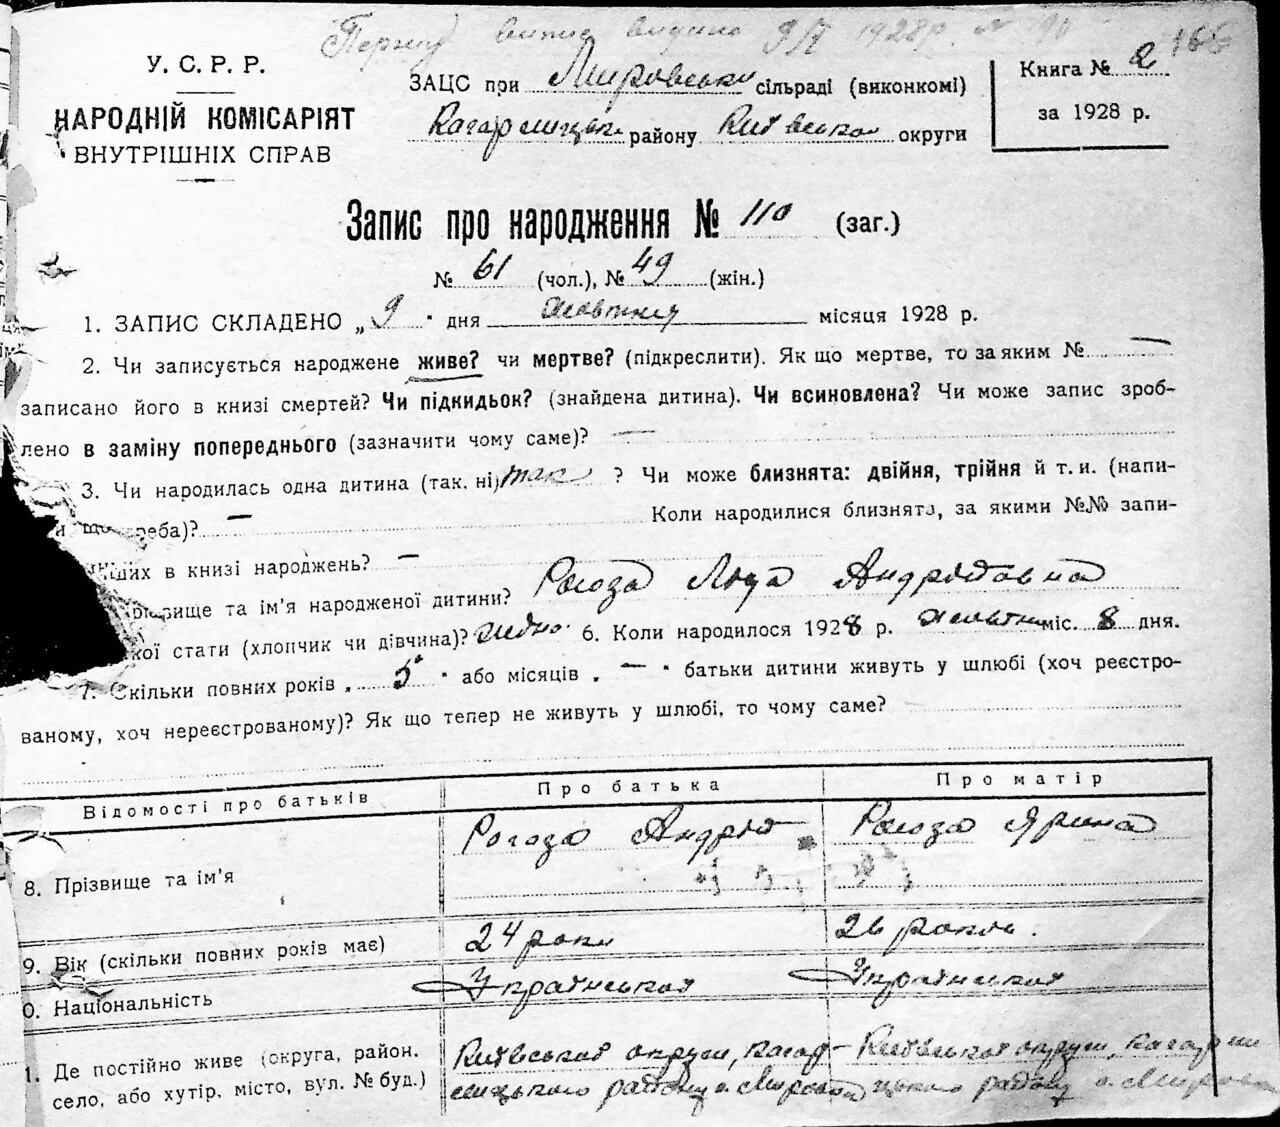 Першу випис видано 9/X 1928 р. № 90
165
У. С. Р. Р.
НАРОДНІЙ КОМІСАРІЯТ
ВНУТРІШНІХ СПРАВ
ЗАЦС при Мировськи сільраді (виконкомі)
Кагарлицьк району Київської округи
Книга № 2
за 1928 р.
Запис про народження № 110 (заг.)
№ 61 (чол.), № 49 (жін.)
1. ЗАПИС СКЛАДЕНО „ 9 " дня жовтня місяця 1928 р.
2. Чи записується народжене живе? чи мертве? (підкреслити). Як що мертве, то за яким № —
записано його в книзі смертей? Чи підкидьок? (знайдена дитина). Чи всиновлена? Чи може запис зроб-
лено в заміну попереднього (зазначити чому саме)? —
3. Чи народилась одна дитина (так, ні) так ? Чи може близнята: двійня, трійня й т. и. (напи-
и що треба)? — Коли народилися близнята, за якими №№ запи-
інших в книзі народжень? —
звище та ім'я народженої дитини? Рогоза Люда Андріївна
кої стати (хлопчик чи дівчина)? 6. Коли народилося 1928 р. жовтня міс. 8 дня.
7. Скільки повних років „ 5 " або місяців „ — " батьки дитини живуть у шлюбі (хоч реєстро-
ваному, хоч нереєстрованому)? Як що тепер не живуть у шлюбі, то чому саме?
Відомості про батьків Про батька Про матір
8. Прізвище та ім'я Рогоза Андрій Рогоза Ярина
9. Вік (скільки повних років має) 24 роки 26 років.
0. Національність Українська Українська
1. Де постійно живе (округа, район, Київської округи, Кагар- Київської округи, Кагарли
село, або хутір, місто, вул. № буд.) лицького району с. Мировка цького району с. Мировка